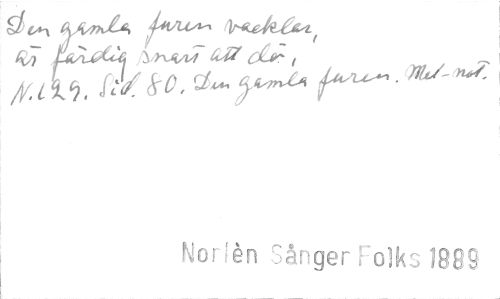 Den gamla furen vacklar,
är färdig snart att dö,
N. 129. Sid. 80. Den gamla furen. Mel-not.
Norlèn Sånger Folks 1889